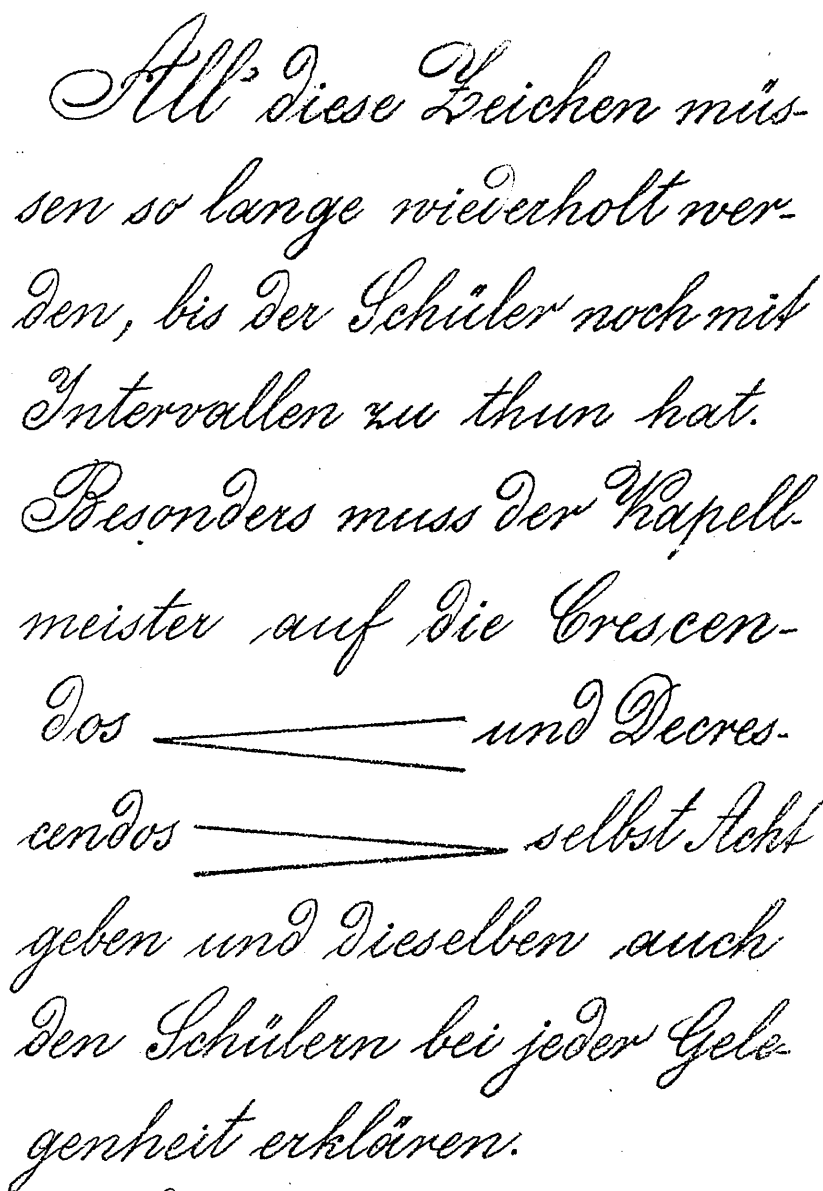 All' diese Zeichen müs-
sen so lange wiederholt wer-
den, bis der Schüler noch mit
Intervallen zu thun hat.
Besonders muss der Kapell-
meister auf die Crescen-
dos und Decres-
cendos selbst Acht
geben und dieselben auch
den Schülern bei jeder Gele-
genheit erklären.